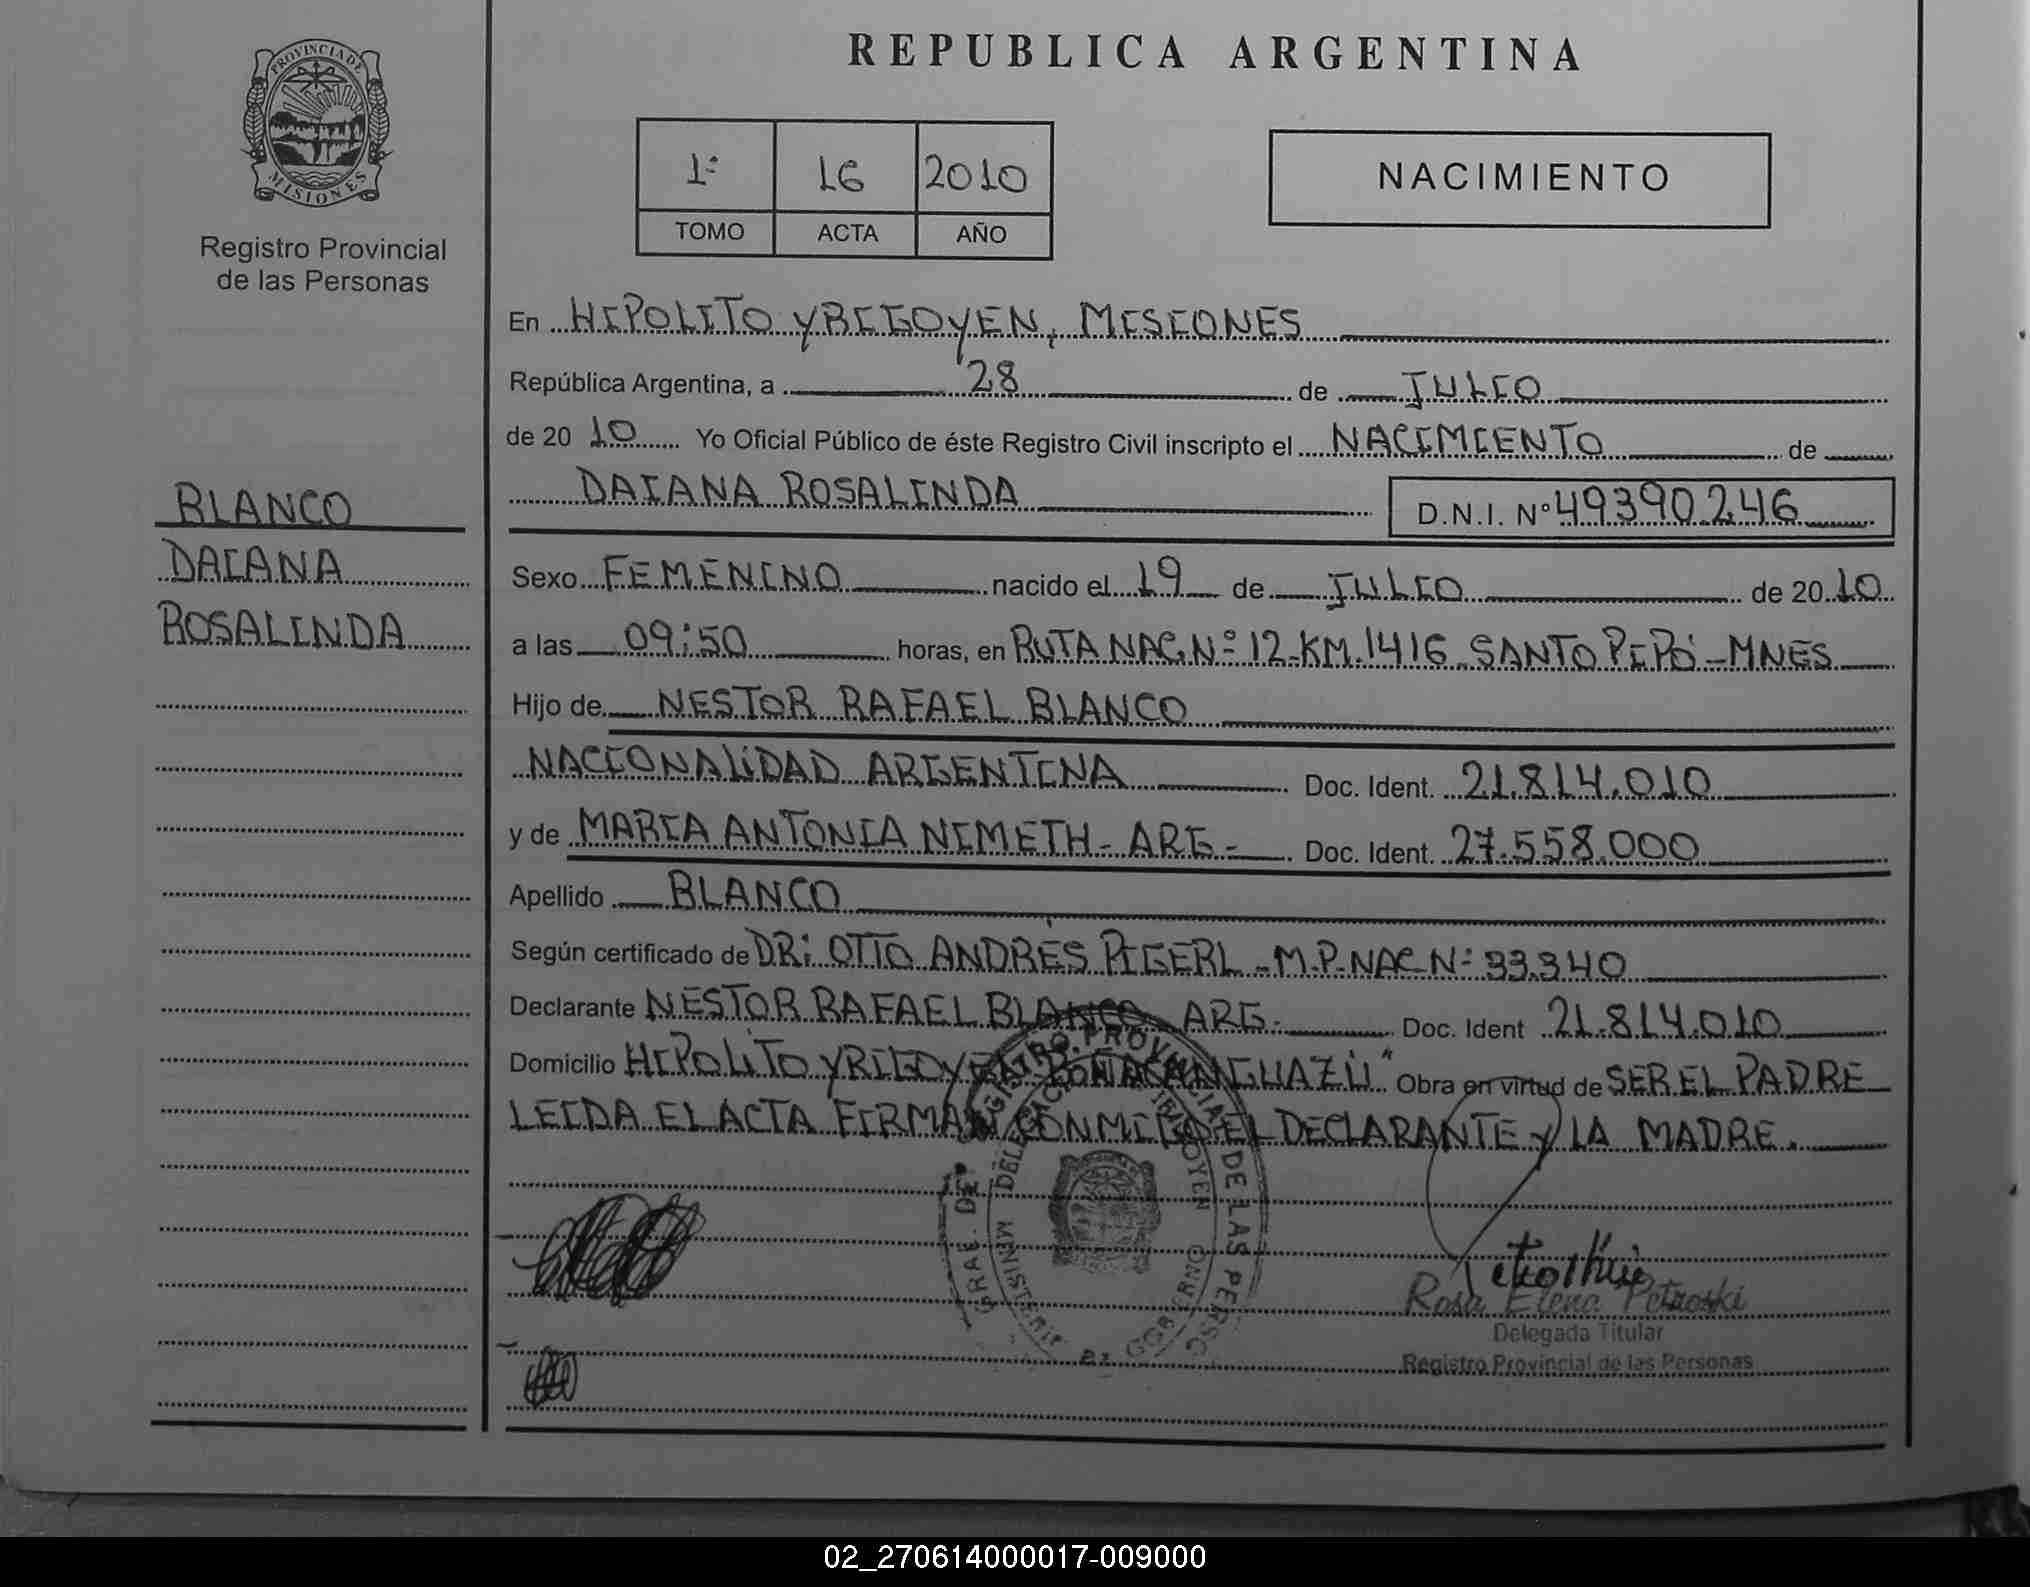 PROVINCIA DE
MISIONES
Registro Provincial
de las Personas
BLANCO
DAIANA
ROSALINDA
REPUBLICA ARGENTINA
1º 16 2010
TOMO ACTA AÑO
NACIMIENTO
En HIPOLITO YRIGOYEN, MISIONES
República Argentina, a 28 de JULIO
de 20 10 Yo Oficial Público de éste Registro Civil inscripto el NACIMIENTO de
DAIANA ROSALINDA D.N.I. Nº 49390246
Sexo FEMENINO nacido el 19 de JULIO de 20 10
a las 09:50 horas, en RUTA NAC. Nº 12-KM.1416 SANTO PIPÓ-MNES
Hijo de NESTOR RAFAEL BLANCO
NACIONALIDAD ARGENTINA Doc. Ident. 21.814.010
y de MARIA ANTONIA NIMETH- ARG- Doc. Ident. 27.558.000
Apellido BLANCO
Según certificado de DR: OTTO ANDRÉS PIGERL-M.P.NAC Nº 33.340
Declarante NESTOR RAFAEL BLANCO ARG- Doc. Ident 21.814.010
Domicilio HIPOLITO YRIGOYEN GUAZÚ" Obra en virtud de SER EL PADRE
LEIDA EL ACTA FIRMAN CONMIGO EL DECLARANTE Y LA MADRE.
Rosa Elena Petroski
Delegada Titular
Registro Provincial de las Personas
02_270614000017-009000